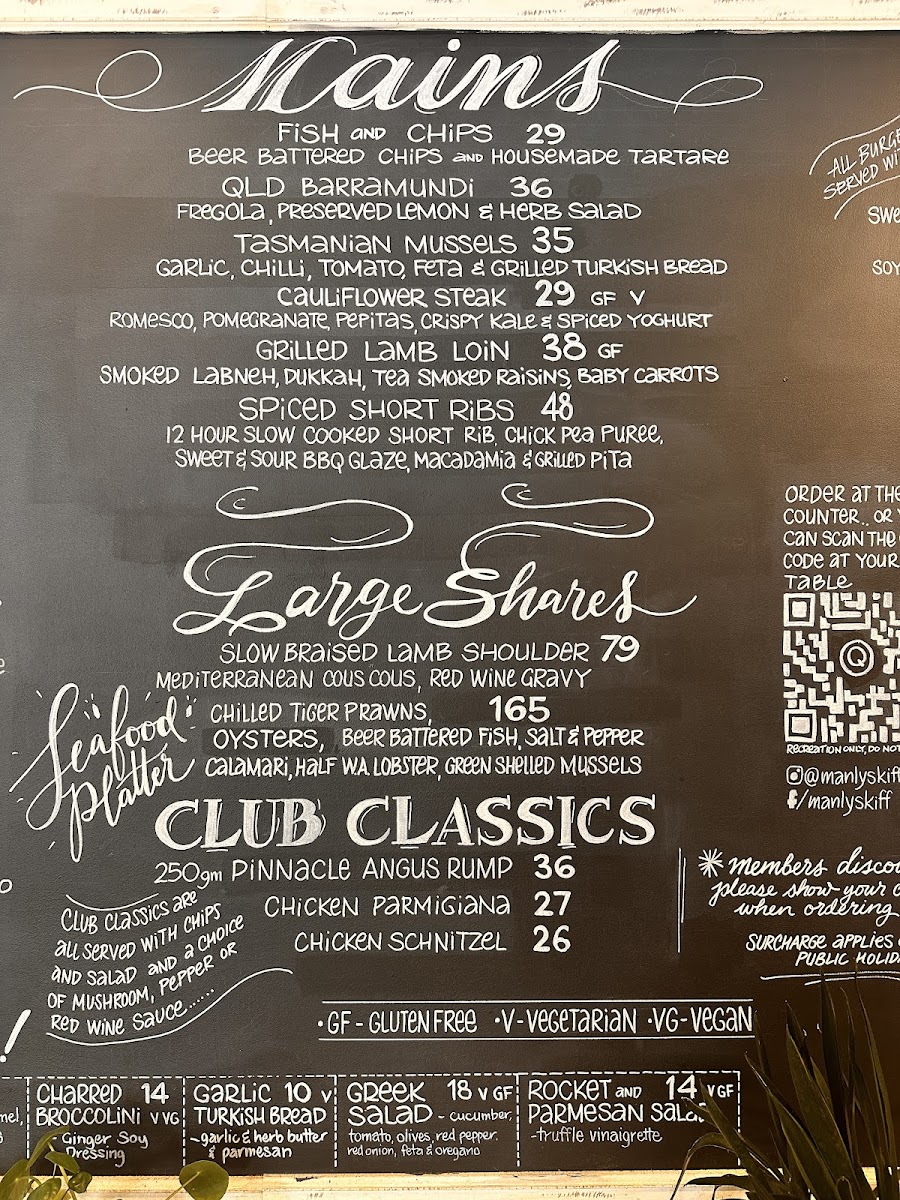 Mains
FISH AND CHIPS 29
BEER BATTERED CHIPS AND HOUSEMADE TARTARE
QLD BARRAMUNDI 36
FREGOLA, PRESERVED LEMON & HERB SALAD
TASMANIAN MUSSELS 35
GARLIC, CHILLI, TOMATO, FETA & GRILLED TURKISH BREAD
CAULIFLOWER STEAK 29 GF V
ROMESCO, POMEGRANATE, PEPITAS, CRISPY KALE & SPICED YOGHURT
GRILLED LAMB LOIN 38 GF
SMOKED LABNEH, DUKKAH, TEA SMOKED RAISINS, BABY CARROTS
SPICED SHORT RIBS 48
12 HOUR SLOW COOKED SHORT RIB, CHICK PEA PUREE,
SWEET & SOUR BBQ GLAZE, MACADAMIA & GRILLED PITA
Large Shares
SLOW BRAISED LAMB SHOULDER 79
MEDITERRANEAN COUS COUS, RED WINE GRAVY
Seafood
Platter
CHILLED TIGER PRAWNS, 165
OYSTERS, BEER BATTERED FISH, SALT & PEPPER
CALAMARI, HALF W.A LOBSTER, GREEN SHELLED MUSSELS
CLUB CLASSICS
250gm PINNACLE ANGUS RUMP 36
CHICKEN PARMIGIANA 27
CHICKEN SCHNITZEL 26
CLUB CLASSICS ARE
ALL SERVED WITH CHIPS
AND SALAD AND A CHOICE
OF MUSHROOM, PEPPER OR
RED WINE SAUCE......
•GF - GLUTEN FREE •V - VEGETARIAN •VG - VEGAN
CHARRED 14
BROCCOLINI V VG
Ginger Soy
Dressing
GARLIC 10 V
TURKISH BREAD
-garlic & herb butter
& parmesan
GREEK 18 V GF
SALAD - cucumber,
tomato, olives, red pepper,
red onion, feta & oregano
ROCKET AND 14 V GF
PARMESAN
-truffle vinaigrette
ALL
SERVED
ORDER AT THE
COUNTER.. OR
CAN SCAN THE
CODE AT YOUR
TABLE
Q
RECREATION ONLY, DO NOT
@manlyskiff
/manlyskiff
*members
please show your
when ordering
SURCHARGE APPLIES
PUBLIC